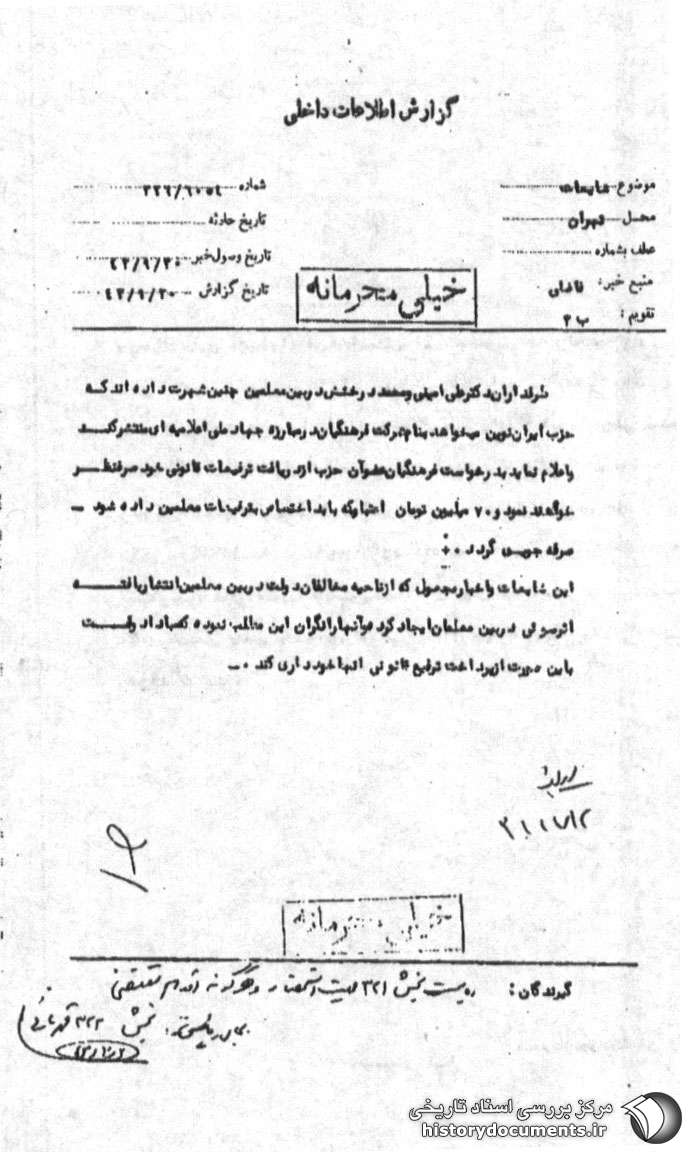 گزارش اطلاعات داخلی
موضوع شایعات
شماره ۳۲۶/۹۰۵۴
محل تهران
تاریخ حادثه
عطف بشماره
تاریخ وصول خبر ۴۳/۹/۳۰
منبع خبر: فاضلی
تاریخ گزارش ۴۳/۹/۳۰
تقویم: ب ۳
خیلی محرمانه
طرفداران دکتر علی امینی و محمد درخشش در بین معلمین چنین شهرت داده اند که
حزب ایران نوین میخواهد بنام شرکت فرهنگیان در مبارزه جهاد ملی اعلامیه ای منتشر کند
و اعلام نماید بدرخواست فرهنگیان عضو آن حزب از دریافت ترفیعات قانونی خود صرفنظر
خواهند نمود و ۷۰ میلیون تومان اعتباریکه باید اختصاص بترفیعات معلمین داده شود –
صرفه جویی گردد ۰
این شایعات و اخبار مجعول که از ناحیه مخالفان دولت در بین معلمین انتشار یافته
اثر سوئی در بین معلمان ایجاد کرده و آنها را نگران این مطلب نموده که مبادا دولت
باین صورت از پرداخت ترفیع قانونی آنها خودداری کند ۰–
خیلی محرمانه
گیرندگان: ریاست بخش ۳۲۱ جهت استحضار و هرگونه اقدام مقتضی
بخش ۳۲۲
مرکز بررسی اسناد تاریخی
historydocuments.ir